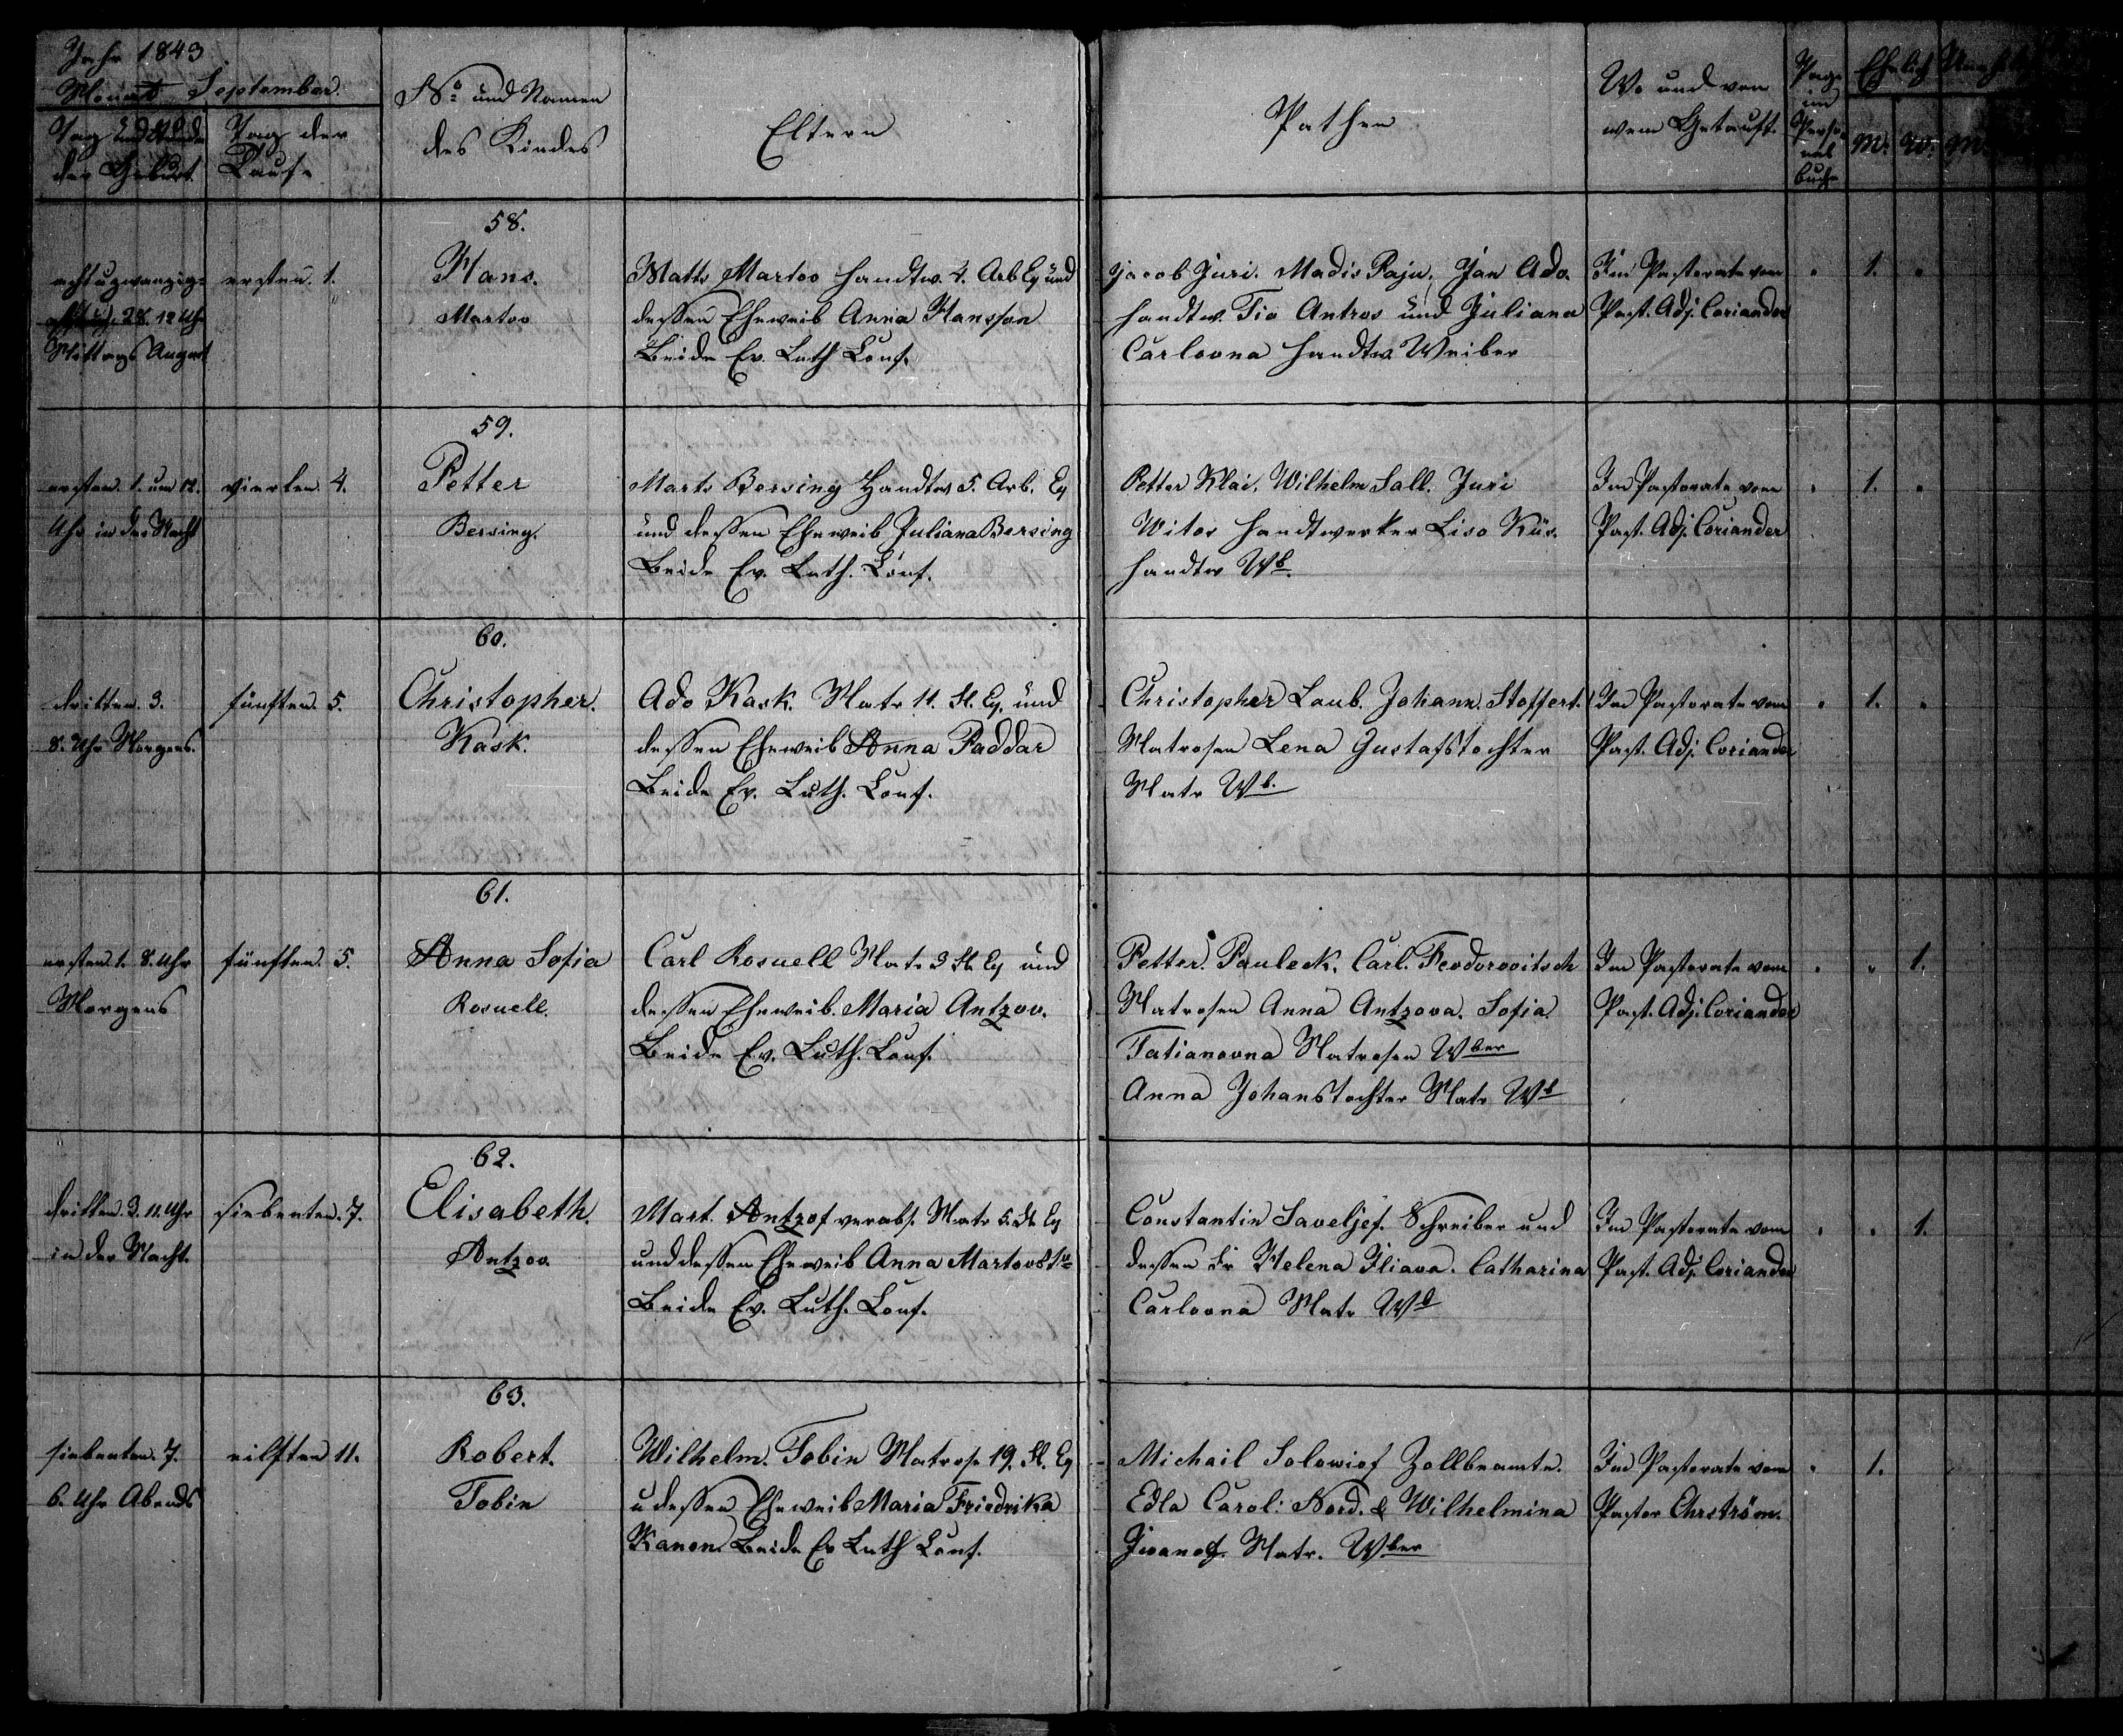 Jahr 1843
Monat September.
Tag und Stunde
der Geburt.
Tag der
Taufe
No und Namen
des Kindes
Eltern
Pathen
Wo und von
wem Getauft.
Pag.
im
Perso-
nal
buche
Ehelich
M. W. M.
58.
achtuzwanzig-
28. 12 Uhr
Mittags August
ersten. 1.
Hans.
Martoo
Matts Martoo Handtw. 4. Arb Eq und
dessen Eheweib Anna Hansson
Beide Ev. Luth Conf.
Jacob Juri. Madis Paju, Jan Ado.
Handtw. Tio Antros und Juliana
Carlovna Handtw. Weiber
Im Pastorate vom
Past. Adj. Coriander
1.
59.
ersten. 1. um 12.
Uhr in der Nacht
vierten 4.
Petter
Bersing.
Marts Bersing Handtw 5. Arb. Eq
und dessen Eheweib Juliana Bersing
Beide Ev. Luth. Conf.
Petter Klai. Wilhelm Sall. Juri
Witos Handtwerker Liso Küs.
Handtw Wb.
Im Pastorate vom
Past. Adj. Coriander
1.
60.
dritten. 3.
8. Uhr Morgens.
fünften. 5.
Christopher.
Kask.
Ado Kask. Matr 11. Fl. Eq. und
dessen Eheweib Anna Paddar
Beide Ev. Luth. Conf.
Christopher Laub. Johann. Stoffert.
Matrosen Lena Gustafstochter
Matr Wb.
Im Pastorate vom
Past. Adj. Coriander
1.
61.
ersten. 1. 8. Uhr
Morgens
fünften. 5.
Anna Sofia
Rosuell.
Carl Rosuell Matr 3 Fl. Eq und
dessen Eheweib. Maria Antzov.
Beide Ev. Luth. Conf.
Petter. Pauleck. Carl. Feodorovitsch
Matrosen Anna Antzova. Sofia.
Tatianovna Matrosen Wber
Anna Johanstochter Matr Wb
Im Pastorate vom
Past. Adj. Coriander
1.
62.
dritten. 3. 11. Uhr
in der Nacht.
siebenten. 7.
Elisabeth.
Antzov.
Mart. Antzof verabs. Matr 5. Fl. Eq
und dessen Eheweib Anna Martovstr
Beide Ev. Luth. Conf.
Constantin Saveljef. Schreiber und
dessen Fr Helena Iliava. Catharina
Carlovna Matr Wb
Im Pastorate vom
Past. Adj. Coriander
1.
63.
siebenten. 7.
6. Uhr Abends
eilften 11.
Robert.
Tobin
Wilhelm. Tobin Matrose 19. Fl. Eq
u dessen Eheweib Maria Friedrika
Kanon. Beide Ev Luth Conf.
Michail Solowief Zollbeamte.
Edla Carol: Nord. & Wilhelmina
Jivanof. Matr. Wber
Im Pastorate vom
Pastor Ehrström.
1.